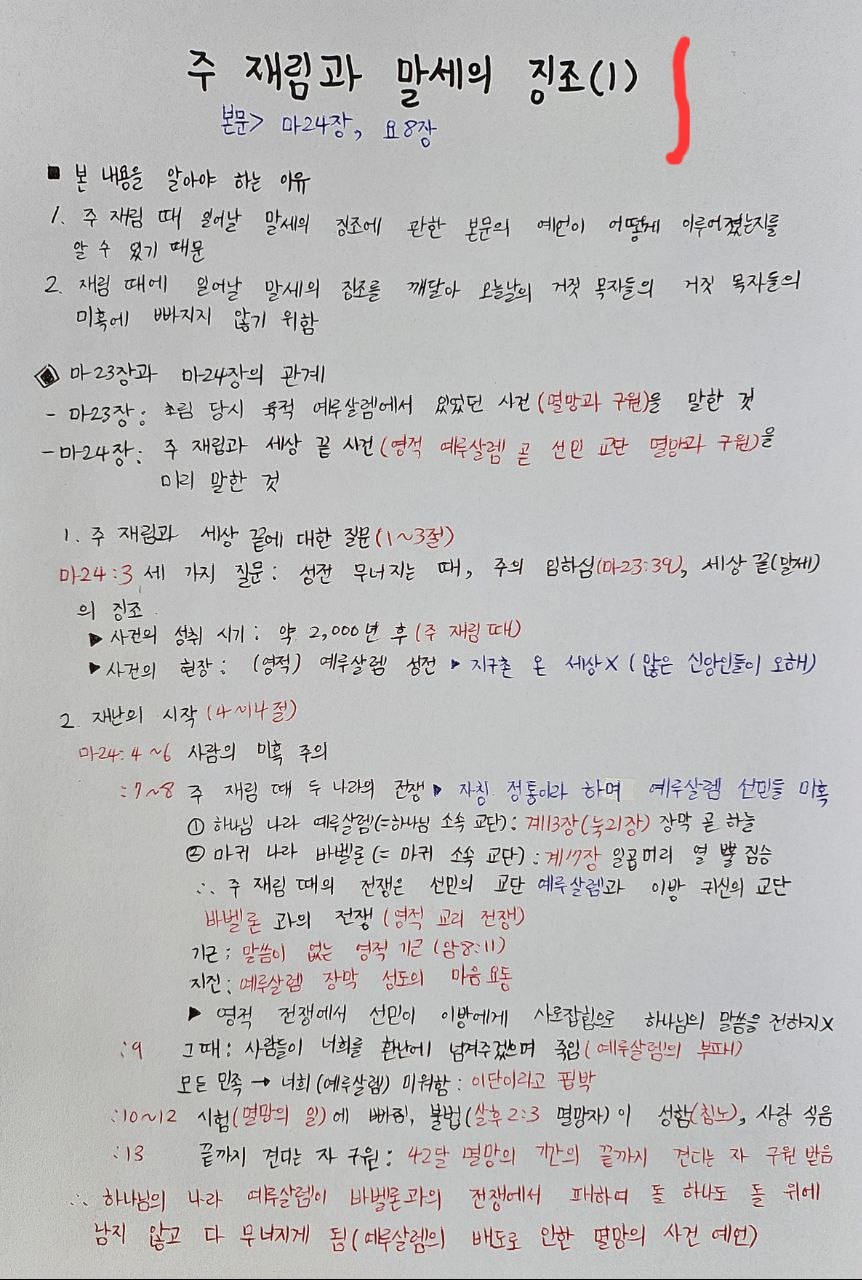 주 재림과 말세의 징조(1)
본문> 마24장, 요8장
■ 본 내용을 알아야 하는 이유
1. 주 재림 때 일어날 말세의 징조에 관한 본문의 예언이 어떻게 이루어졌는지를
알 수 있기 때문
2. 재림 때에 일어날 말세의 징조를 깨달아 오늘날의 거짓 목자들의 거짓 목자들의
미혹에 빠지지 않기 위함
◈ 마23장과 마24장의 관계
- 마23장: 초림 당시 육적 예루살렘에서 있었던 사건(멸망과 구원)을 말한 것
- 마24장: 주 재림과 세상 끝 사건(영적 예루살렘 곧 선민 교단 멸망과 구원)을
미리 말한 것
1. 주 재림과 세상 끝에 대한 질문(1~3절)
마24:3 세 가지 질문: 성전 무너지는 때, 주의 임하심(마23:39), 세상 끝(말세)
의 징조
▶ 사건의 성취 시기: 약 2,000년 후(주 재림 때)
▶ 사건의 현장: (영적) 예루살렘 성전 ▶ 지구촌 온 세상X (많은 신앙인들이 오해)
2. 재난의 시작(4~14절)
마24:4~6 사람의 미혹 주의
:7~8 주 재림 때 두 나라의 전쟁 ▶ 자칭 정통이라 하며 예루살렘 선민들 미혹
① 하나님 나라 예루살렘(=하나님 소속 교단): 계13장(눅21장) 장막 곧 하늘
② 마귀 나라 바벨론(= 마귀 소속 교단): 계17장 일곱머리 열 뿔 짐승
∴ 주 재림 때의 전쟁은 선민의 교단 예루살렘과 이방 귀신의 교단
바벨론 과의 전쟁 (영적 교리 전쟁)
기근: 말씀이 없는 영적 기근(암8:11)
지진: 예루살렘 장막 성도의 마음 요동
▶ 영적 전쟁에서 선민이 이방에게 사로잡힘으로 하나님의 말씀을 전하지X
:9 그때: 사람들이 너희를 환난에 넘겨주겠으며 죽임(예루살렘의 부패)
모든 민족 → 너희(예루살렘) 미워함: 이단이라고 핍박
:10~12 시험(멸망의 일)에 빠짐, 불법(살후2:3 멸망자)이 성함(침노), 사랑 식음
:13 끝까지 견디는 자 구원: 42달 멸망의 기간의 끝까지 견디는 자 구원 받음
∴ 하나님의 나라 예루살렘이 바벨론과의 전쟁에서 패하여 돌 하나도 돌 위에
남지 않고 다 무너지게 됨(예루살렘의 배도로 인한 멸망의 사건 예언)